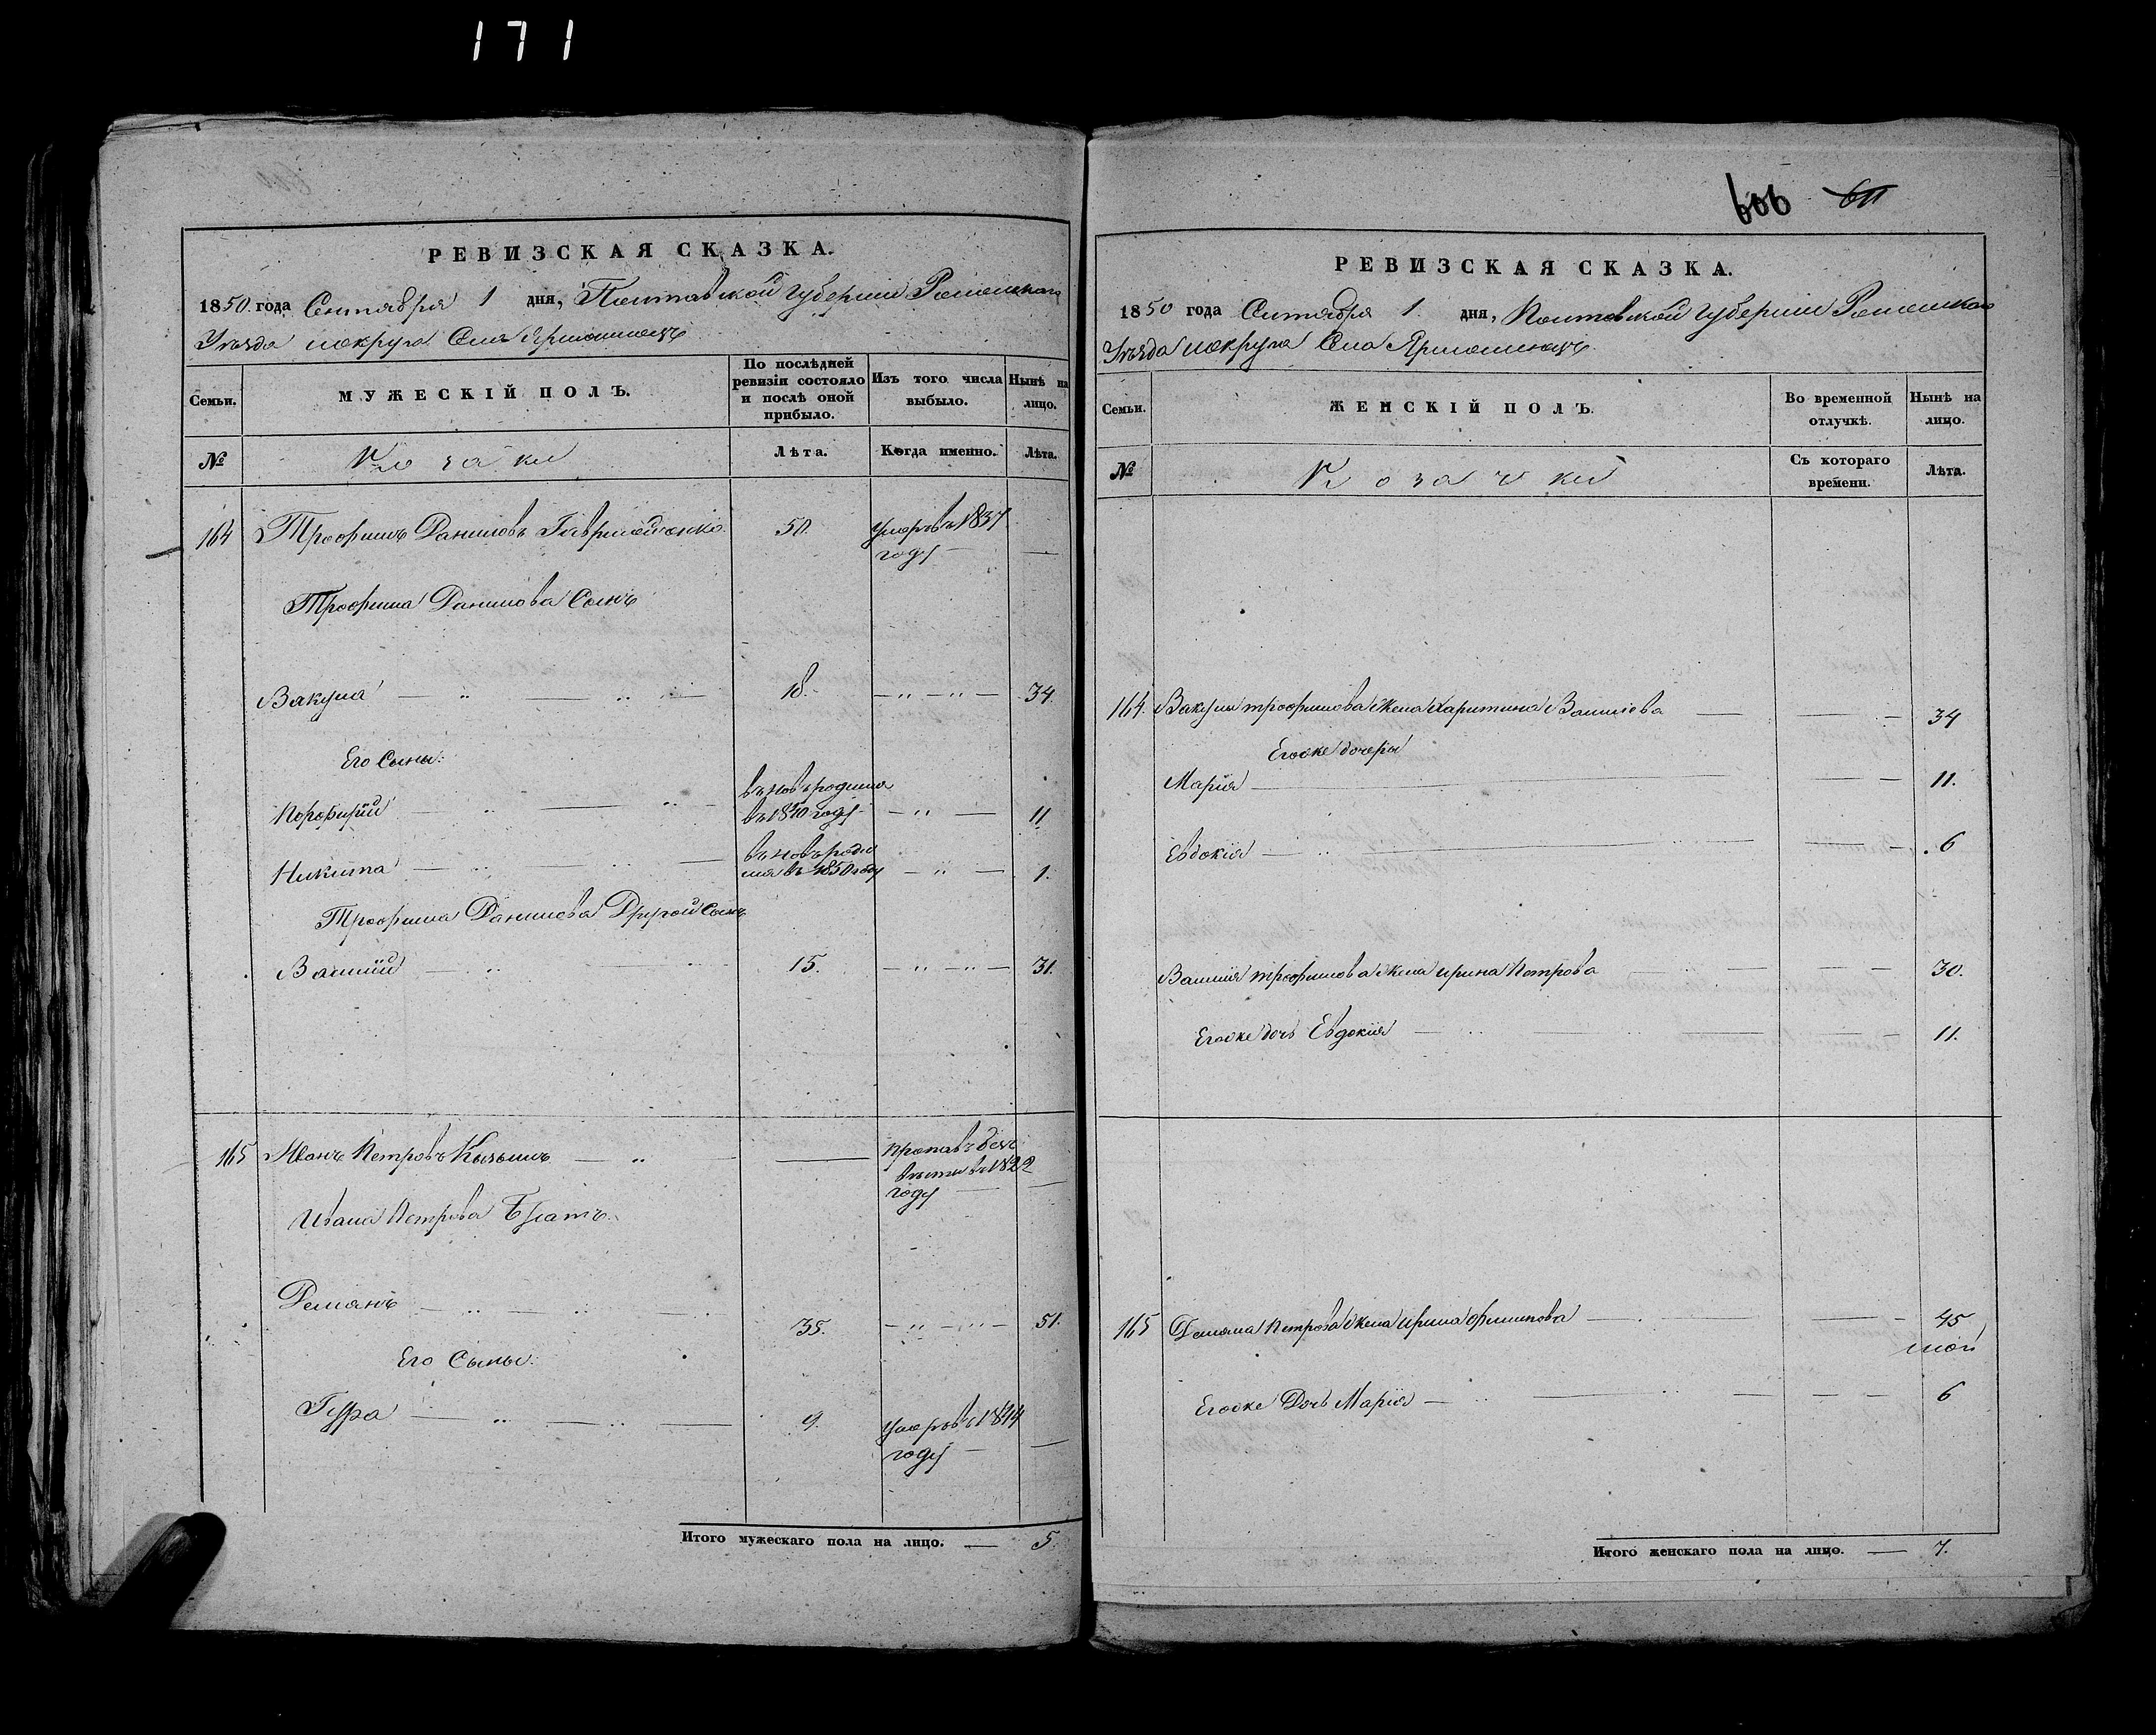 171
РЕВИЗСКАЯ СКАЗКА.
1850 года Сентября 1 дня, Полтавской Губернии Роменскаго
Уѣзда и округа Села Ярмолинецъ
Семьи.
МУЖЕСКІЙ ПОЛЪ.
По послѣдней ревизіи состояло и послѣ оной прибыло.
Изъ того числа выбыло.
Нынѣ на лицо.
№
Козаки
Лѣта.
Когда именно.
Лѣта.
164 Трофимъ Даниловъ 50. умеръ въ 1837
году —
Трофима Данилова Сынъ
Вакула 18. 34.
Его Сыны:
въ новъ родился
Порфирій въ 1840 году 11
въ новъ роди
Никита лся въ 1850 году 1.
Трофима Данилова Другой Сынъ
Василій 15. 31.
165 Иванъ Петровъ пропавъ безъ
вѣсти въ 1822
году —
Ивана Петрова Братъ
Демянъ 35. 51.
Его Сыны:
Гура 9. умеръ въ 1844
году —
Итого мужескаго пола на лицо. — 5.
606 611
РЕВИЗСКАЯ СКАЗКА.
1850 года Сентября 1. дня, Полтавской Губернии Роменскаго
Уѣзда и округа Села Ярмолинецъ
Семьи.
ЖЕНСКІЙ ПОЛЪ.
Во временной отлучкѣ.
Нынѣ на лицо.
№
Козачки
Съ котораго времени.
Лѣта.
164. Вакулы трофимова жена Харитина Василіева 34
Егоже дочеры
Марія 11.
Евдокія 6
Василія трофимова жена ирина Петрова 30.
Егоже дочь Евдокія 11.
165 Демяна Петрова жена ирина филипова 45
Егоже Дочь Марія 6
Итого женскаго пола на лицо. — 7.